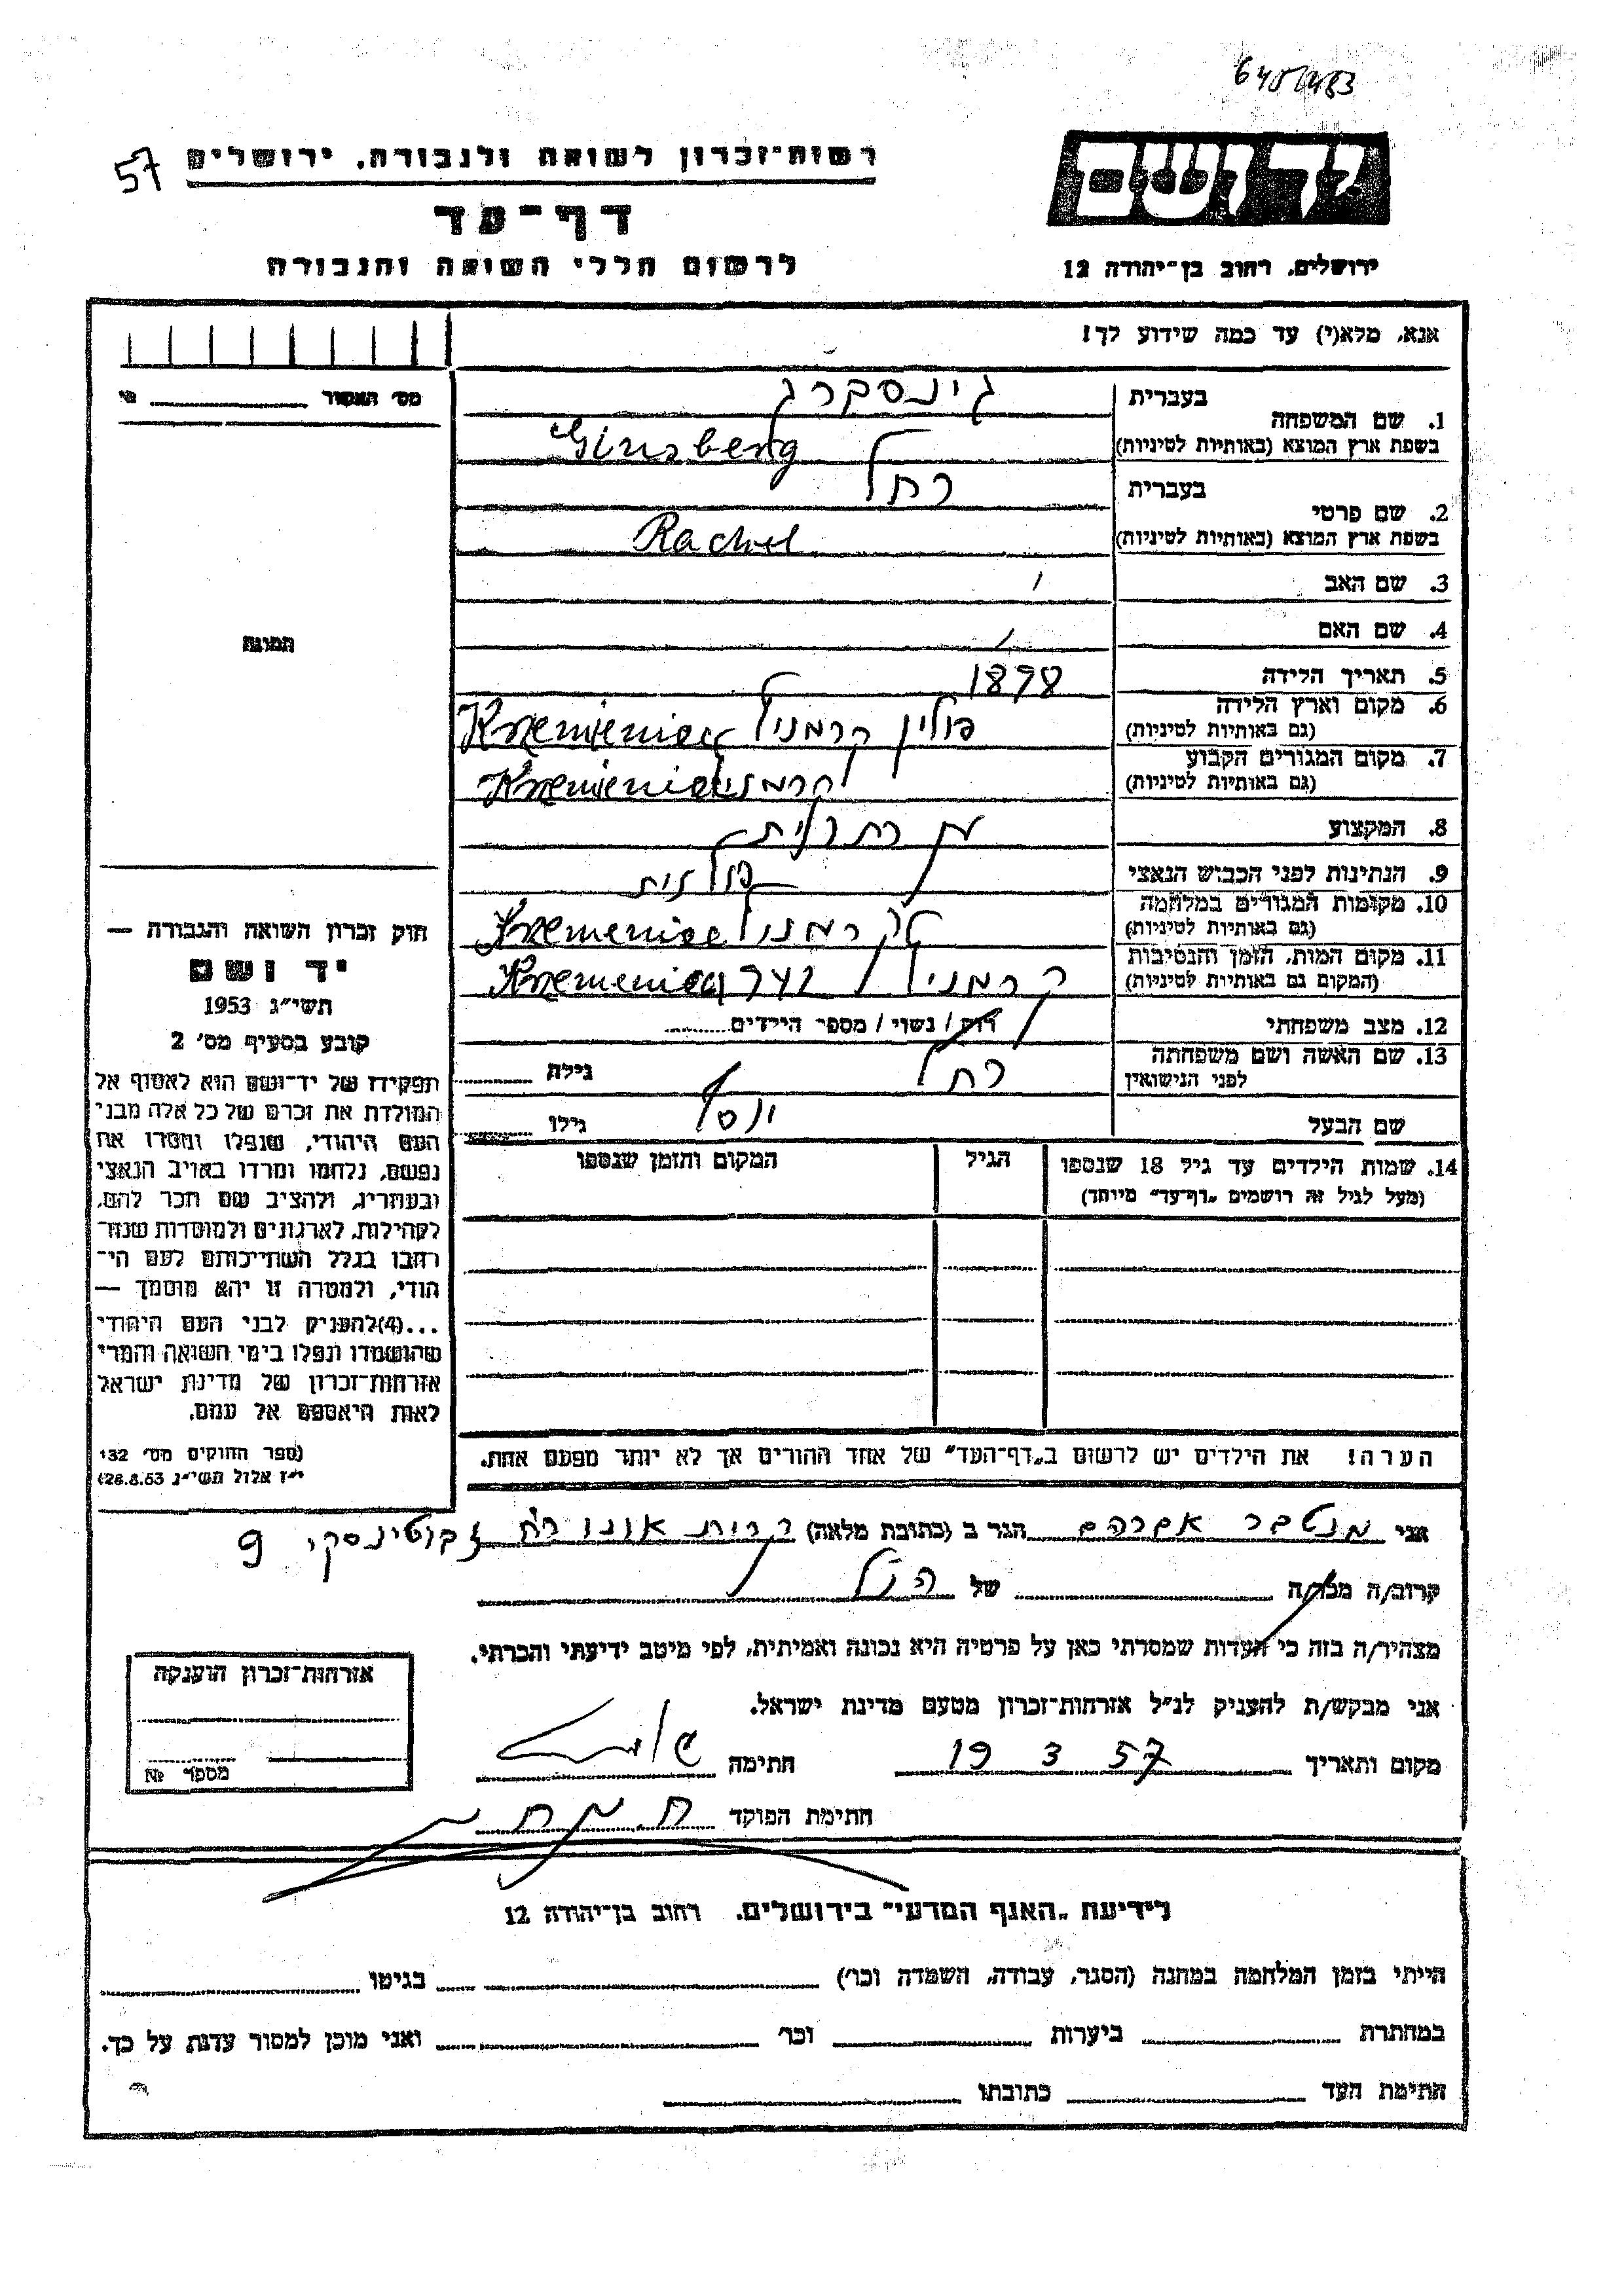 6451483
57
רשות־זכרון לשואה ולגבורה, ירושלים
יד ושם
דף־עד
לרשום חללי השואה והגבורה
ירושלים, רחוב בן־יהודה 12
אנא, מלא(י) עד כמה שידוע לך!
מס' האסור
1. שם המשפחה
בעברית גינסברג
בשפת ארץ המוצא (באותיות לטיניות) Ginsberg
2. שם פרטי
בעברית רחל
בשפת ארץ המוצא (באותיות לטיניות) Rachel
3. שם האב
4. שם האם
תמונה
5. תאריך הלידה 1898
6. מקום וארץ הלידה
(גם באותיות לטיניות) פולין קרמניץ Kremieniec
7. מקום המגורים הקבוע
(גם באותיות לטיניות) קרמניץ Kremieniec
8. המקצוע
9. הנתינות לפני הכבוש הנאצי פולנית
10. מקומות המגורים במלחמה
(גם באותיות לטיניות) קרמניץ Kremeniec
11. מקום המות, הזמן והנסיבות
(המקום גם באותיות לטיניות) קרמניץ Kremeniec 942
12. מצב משפחתי רוק / נשוי / מספר הילדים
13. שם האשה ושם משפחתה
לפני הנישואין רחל גילה
שם הבעל יוסף גילו
14. שמות הילדים עד גיל 18 שנספו הגיל המקום והזמן שנספו
(מעל לגיל זה רושמים „דף־עד” מיוחד)
הערה! את הילדים יש לרשום ב„דף־העד” של אחד ההורים אך לא יותר מפעם אחת.
חוק זכרון השואה והגבורה —
יד ושם
תשי״ג 1953
קובע בסעיף מס' 2
תפקידו של יד־ושם הוא לאסוף אל
המולדת את זכרם של כל אלה מבני
העם היהודי, שנפלו ומסרו את
נפשם, נלחמו ומרדו באויב הנאצי
ובעוזריו, ולהציב שם וזכר להם,
לקהילות, לארגונים ולמוסדות שנח־
רבו בגלל השתייכותם לעם הי־
הודי, ולמטרה זו יהא מוסמך —
...(4)להעניק לבני העם היהודי
שהושמדו ונפלו בימי השואה והמרי
אזרחות־זכרון של מדינת ישראל
לאות היאספם אל עמם.
(ספר החוקים מס' 132
י״ז אלול תשי״ג 28.8.53)
אני מנטבר אברהם הגר ב (כתובת מלאה) קרית אונו רח זבוטינסקי 9
קרוב/ה מכר/ה של הנ״ל
מצהיר/ה בזה כי העדות שמסרתי כאן על פרטיה היא נכונה ואמיתית, לפי מיטב ידיעתי והכרתי.
אני מבקש/ת להעניק לנ״ל אזרחות־זכרון מטעם מדינת ישראל.
מקום ותאריך 19 3 57 חתימה
חתימת הפוקד
אזרחות־זכרון הוענקה
מספר №
לידיעת „האגף המדעי” בירושלים. רחוב בן־יהודה 12
הייתי בזמן המלחמה במחנה (הסגר, עבודה, השמדה וכו') בגיטו
במחתרת ביערות וכו' ואני מוכן למסור עדות על כך.
חתימת העד כתובתו